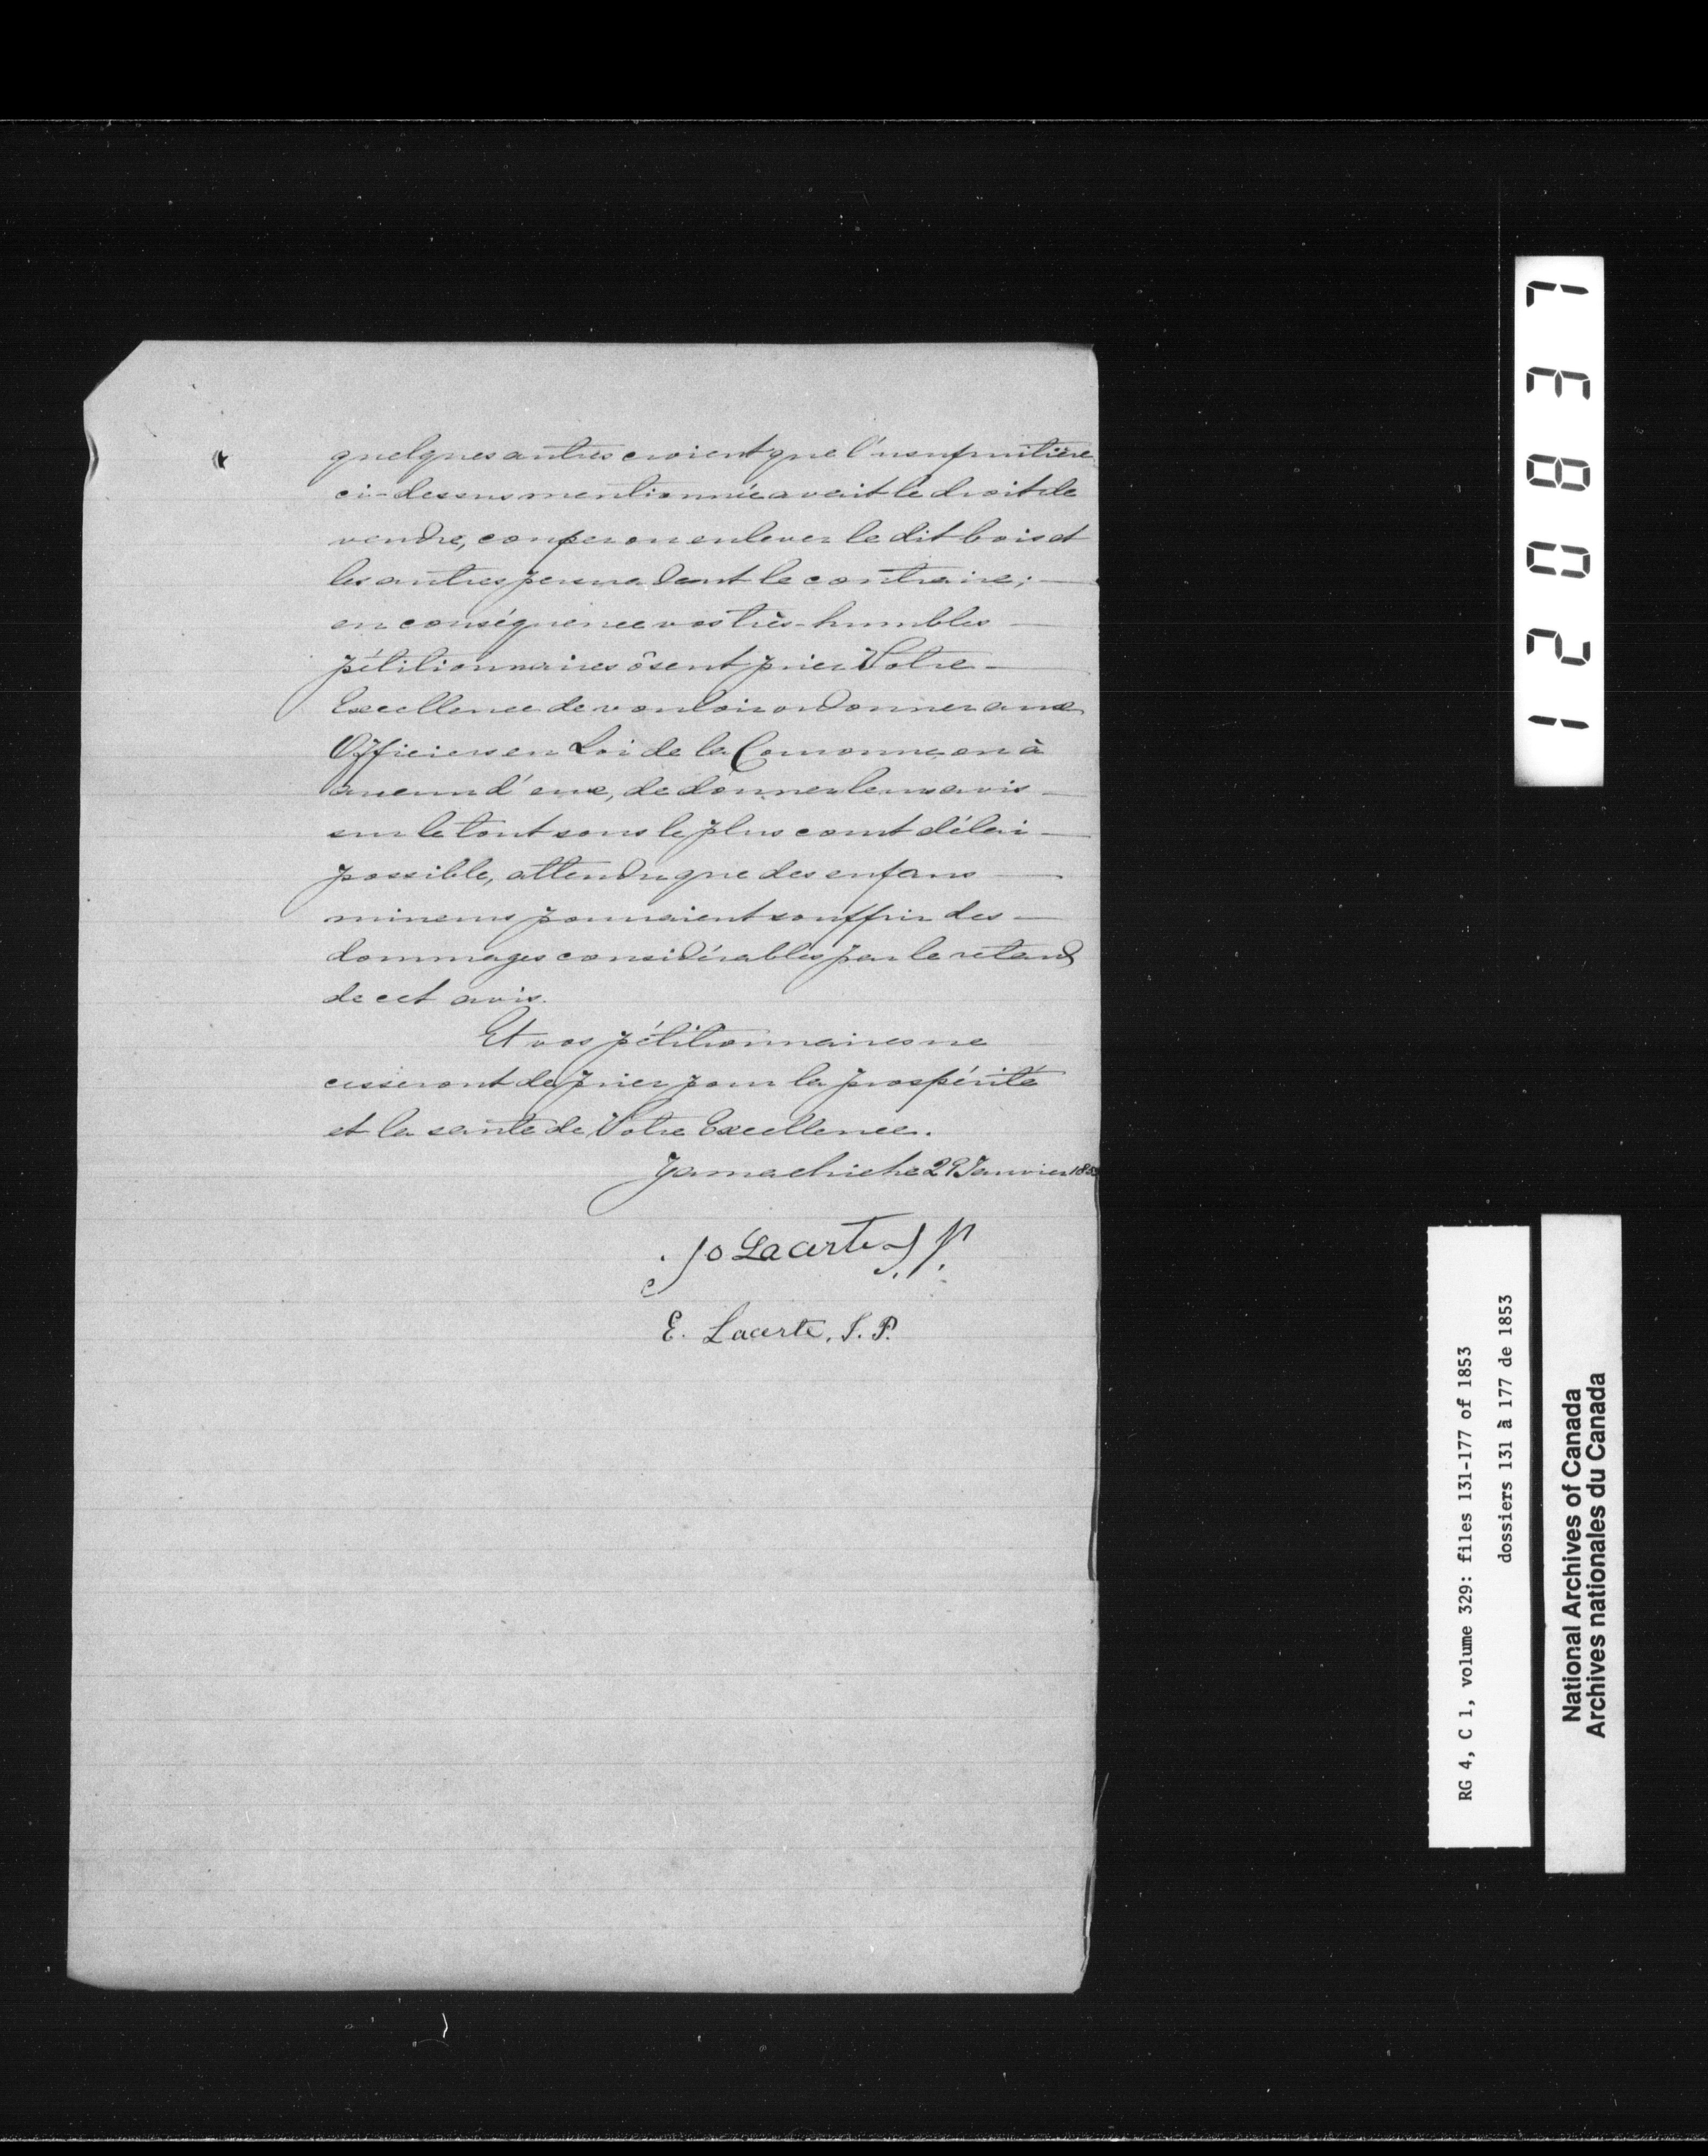 quelques autres croient que l'usufruitière
ci-dessus mentionnée avait le droit de
vendre, couper ou enlever le dit bois et
les autres persuadent le contraire; —
en conséquence vos très-humbles —
pétitionnaires ôsent prier Votre —
Excellence de vouloir ordonner aux
Officiers en Loi de la Couronne ou à
aucun d'eux, de donner leurs avis —
sur le tout sous le plus court délai —
possible, attendu que des enfans —
mineurs pourraient souffrir des —
dommages considérables par le retard
de cet avis.
Et vos pétitionnaires ne
cesseront de prier pour la prospérité
et la santé de Votre Excellence.
Yamachiche 29 Janvier 1853
Jo Lacerte J. P.
E. Lacerte. J. P.
120837
RG 4, C 1, volume 329: files 131-177 of 1853
dossiers 131 à 177 de 1853
National Archives of Canada
Archives nationales du Canada